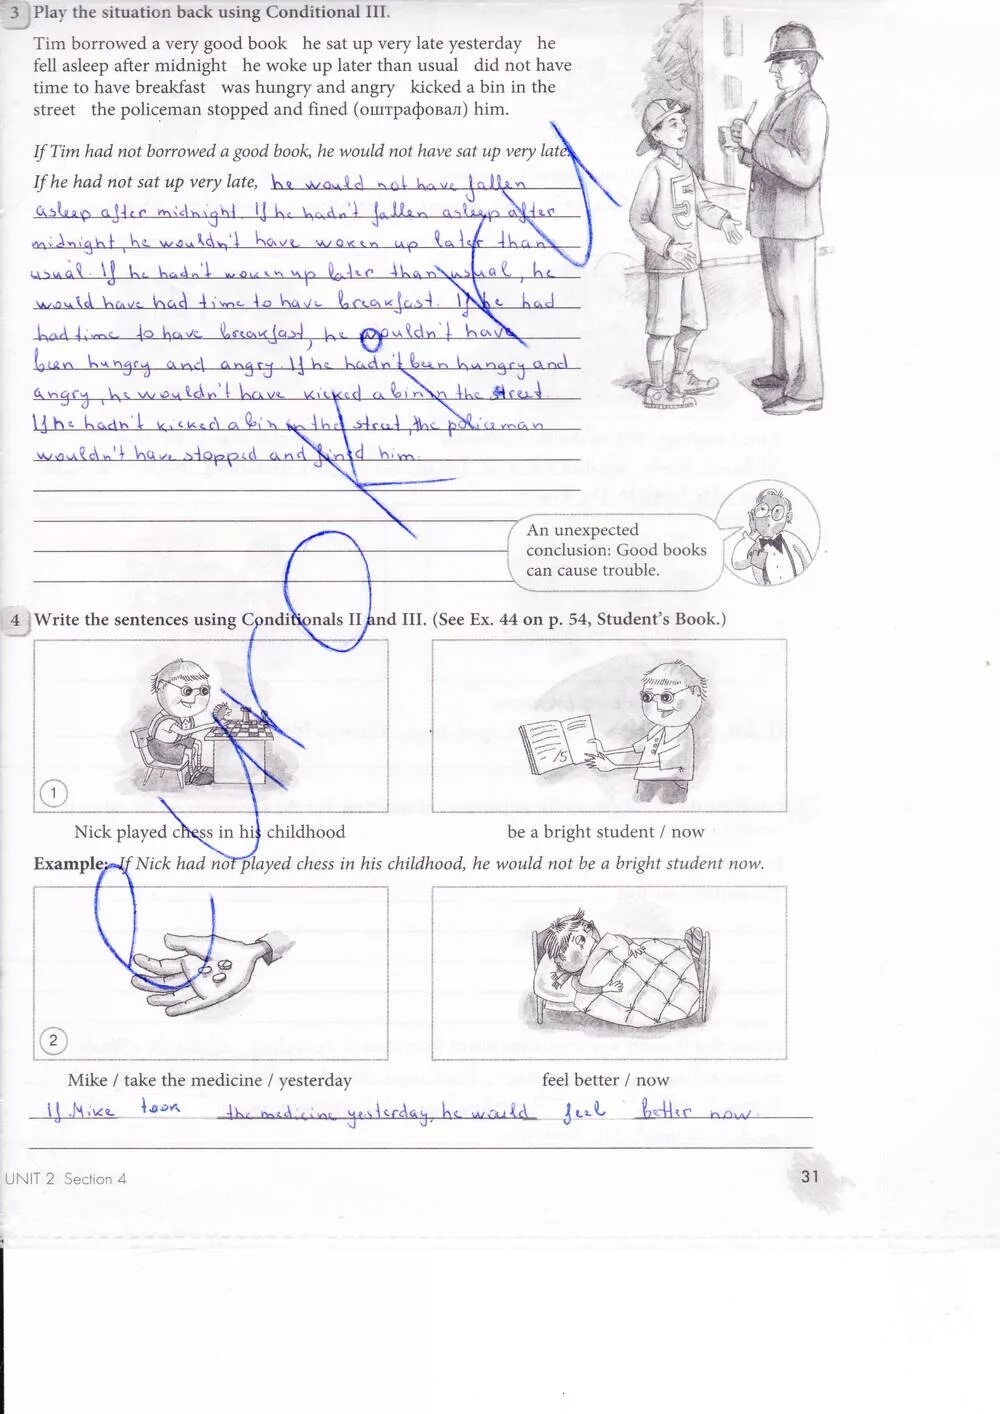 3 Play the situation back using Conditional III.
Tim borrowed a very good book he sat up very late yesterday he
fell asleep after midnight he woke up later than usual did not have
time to have breakfast was hungry and angry kicked a bin in the
street the policeman stopped and fined (оштрафовал) him.
If Tim had not borrowed a good book, he would not have sat up very late.
If he had not sat up very late, he would not have fallen
asleep after midnight. If he hadn't fallen asleep after
midnight, he wouldn't have woken up later than
usual. If he hadn't woken up later than usual, he
would have had time to have breakfast. If he had
had time to have breakfast, he wouldn't have
been hungry and angry. If he hadn't been hungry and
angry, he wouldn't have kicked a bin in the street.
If he hadn't kicked a bin in the street, the policeman
wouldn't have stopped and fined him.
5
An unexpected
conclusion: Good books
can cause trouble.
4 Write the sentences using Conditionals II and III. (See Ex. 44 on p. 54, Student's Book.)
/5
1
Nick played chess in his childhood be a bright student / now
Example: If Nick had not played chess in his childhood, he would not be a bright student now.
2
Mike / take the medicine / yesterday feel better / now
If Mike took the medicine yesterday, he would feel better now.
UNIT 2 Section 4 31
eurokI.ru